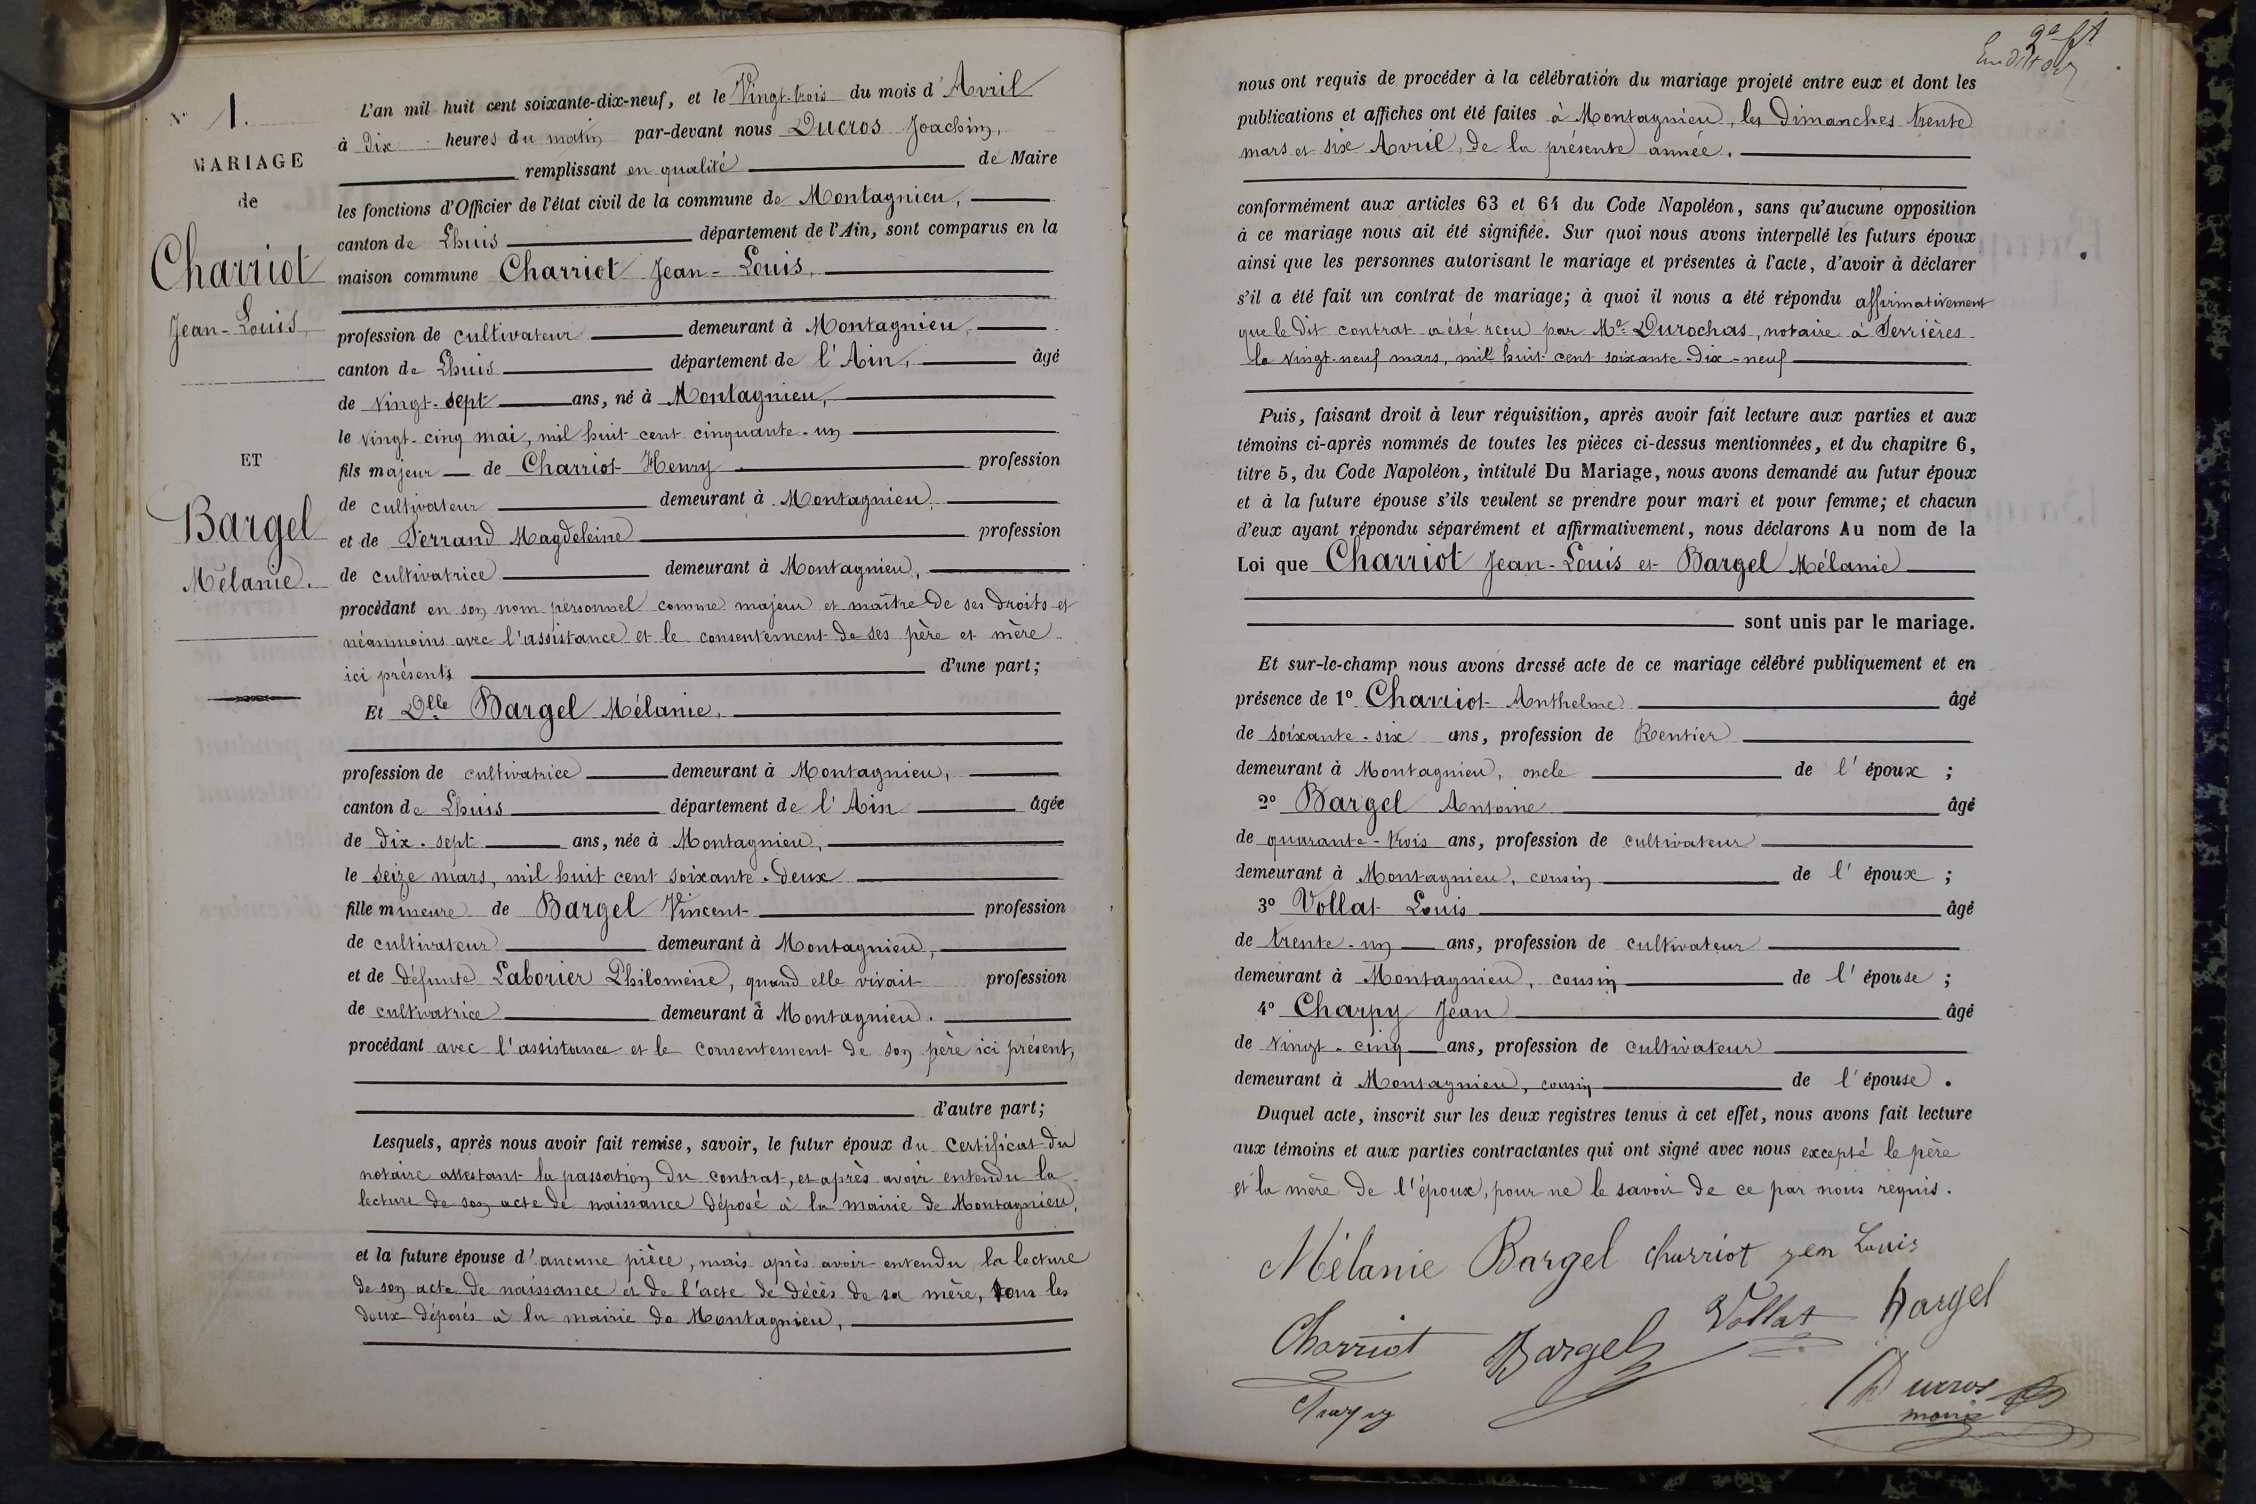 N° 1.
MARIAGE
de
Charriot
Jean-Louis
ET
Bargel
Mélanie.
L'an mil huit cent soixante-dix-neuf, et le Vingt-trois du mois d'Avril
à dix heures du matin par-devant nous Ducros Joachim,
remplissant en qualité de Maire
les fonctions d'Officier de l'état civil de la commune de Montagnieu,
canton de Lhuis département de l'Ain, sont comparus en la
maison commune Charriot Jean-Louis,
profession de cultivateur demeurant à Montagnieu,
canton de Lhuis département de l'Ain, âgé
de vingt-sept ans, né à Montagnieu,
le vingt-cinq mai, mil huit cent cinquante-un
fils majeur de Charriot Henry profession
de cultivateur demeurant à Montagnieu,
et de Ferrand Magdeleine profession
de cultivatrice demeurant à Montagnieu,
procédant en son nom personnel comme majeur et maître de ses droits et
néanmoins avec l'assistance et le consentement de ses père et mère
ici présents d'une part;
Et Dlle Bargel Mélanie,
profession de cultivatrice demeurant à Montagnieu,
canton de Lhuis département de l'Ain âgée
de dix-sept ans, née à Montagnieu,
le seize mars, mil huit cent soixante-deux
fille mineure de Bargel Vincent profession
de cultivateur demeurant à Montagnieu,
et de défunte Laborier Philomène, quand elle vivait profession
de cultivatrice demeurant à Montagnieu.
procédant avec l'assistance et le consentement de son père ici présent,
d'autre part;
Lesquels, après nous avoir fait remise, savoir, le futur époux du certificat du
notaire attestant la passation du contrat, et après avoir entendu la
lecture de son acte de naissance déposé à la mairie de Montagnieu,
et la future épouse d'aucune pièce, mais après avoir entendu la lecture
de son acte de naissance et de l'acte de décès de sa mère, tous les
deux déposés à la mairie de Montagnieu,
nous ont requis de procéder à la célébration du mariage projeté entre eux et dont les
publications et affiches ont été faites à Montagnieu, les dimanches trente
mars et six Avril, de la présente année.
conformément aux articles 63 et 64 du Code Napoléon, sans qu'aucune opposition
à ce mariage nous ait été signifiée. Sur quoi nous avons interpellé les futurs époux
ainsi que les personnes autorisant le mariage et présentes à l'acte, d'avoir à déclarer
s'il a été fait un contrat de mariage; à quoi il nous a été répondu affirmativement
que le dit contrat a été reçu par Me Durochas, notaire à Serrières
le vingt-neuf mars, mil huit cent soixante-dix-neuf
Puis, faisant droit à leur réquisition, après avoir fait lecture aux parties et aux
témoins ci-après nommés de toutes les pièces ci-dessus mentionnées, et du chapitre 6,
titre 5, du Code Napoléon, intitulé Du Mariage, nous avons demandé au futur époux
et à la future épouse s'ils veulent se prendre pour mari et pour femme; et chacun
d'eux ayant répondu séparément et affirmativement, nous déclarons Au nom de la
Loi que Charriot Jean-Louis et Bargel Mélanie
sont unis par le mariage.
Et sur-le-champ nous avons dressé acte de ce mariage célébré publiquement et en
présence de 1° Charriot Anthelme âgé
de soixante-six ans, profession de Rentier
demeurant à Montagnieu, oncle de l'époux ;
2° Bargel Antoine âgé
de quarante-trois ans, profession de cultivateur
demeurant à Montagnieu, cousin de l'époux ;
3° Vollat Louis âgé
de trente-un ans, profession de cultivateur
demeurant à Montagnieu, cousin de l'épouse ;
4° Charpy Jean âgé
de vingt-cinq ans, profession de cultivateur
demeurant à Montagnieu, cousin de l'épouse .
Duquel acte, inscrit sur les deux registres tenus à cet effet, nous avons fait lecture
aux témoins et aux parties contractantes qui ont signé avec nous excepté le père
et la mère de l'époux, pour ne le savoir de ce par nous requis.
Mélanie Bargel charriot jen Louis
Charriot Bargel Vollat Bargel
Ducros
maire